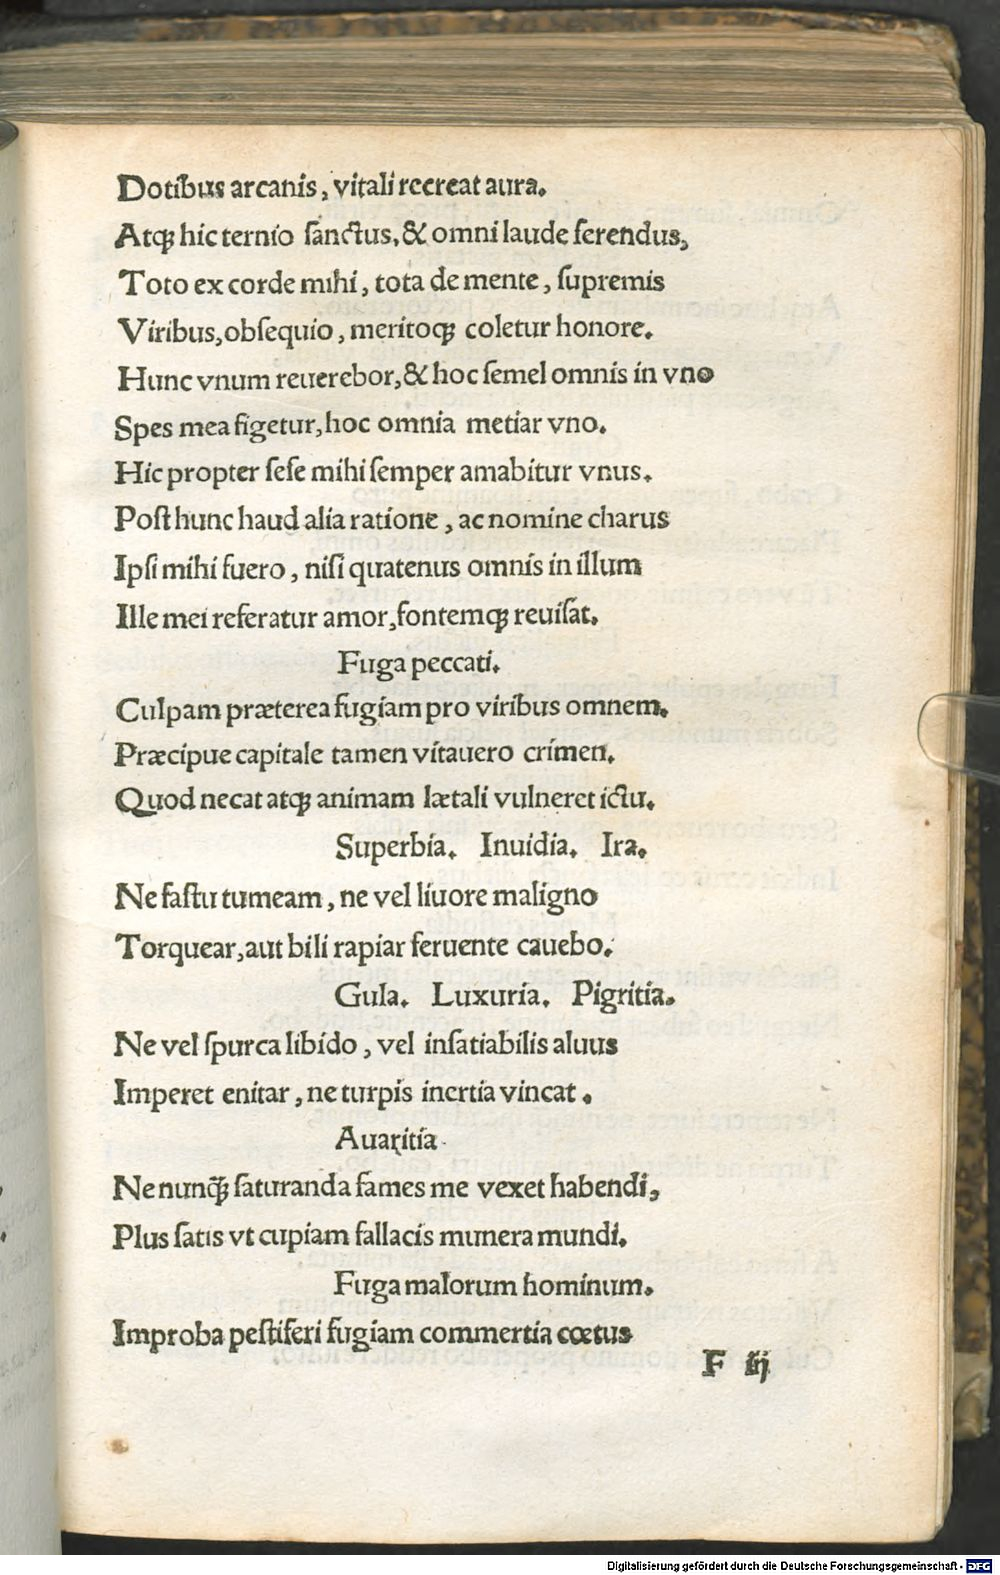 Dotibus arcanis, vitali recreat aura.
Atqꝫ hic ternio sanctus, & omni laude ferendus,
Toto ex corde mihi, tota de mente, supremis
Viribus, obsequio, meritoqꝫ coletur honore.
Hunc vnum reuerebor, & hoc semel omnis in vno
Spes mea figetur, hoc omnia metiar vno.
Hic propter sese mihi semper amabitur vnus.
Post hunc haud alia ratione, ac nomine charus
Ipsi mihi fuero, nisi quatenus omnis in illum
Ille mei referatur amor, fontemqꝫ reuisat.
Fuga peccati.
Culpam præterea fugiam pro viribus omnem.
Præcipue capitale tamen vitauero crimen.
Quod necat atqꝫ animam lætali vulneret ictu.
Superbia. Inuidia. Ira.
Ne fastu tumeam, ne vel liuore maligno
Torquear, aut bili rapiar feruente cauebo.
Gula. Luxuria. Pigritia.
Ne vel spurca libido, vel insatiabilis aluus
Imperet enitar, ne turpis inertia vincat.
Auaritia.
Ne nunq̃ꝫ saturanda fames me vexet habendi,
Plus satis vt cupiam fallacis munera mundi.
Fuga malorum hominum.
Improba pestiferi fugiam commertia cœtus
F iij
Digitalisierung gefördert durch die Deutsche Forschungsgemeinschaft - DFG